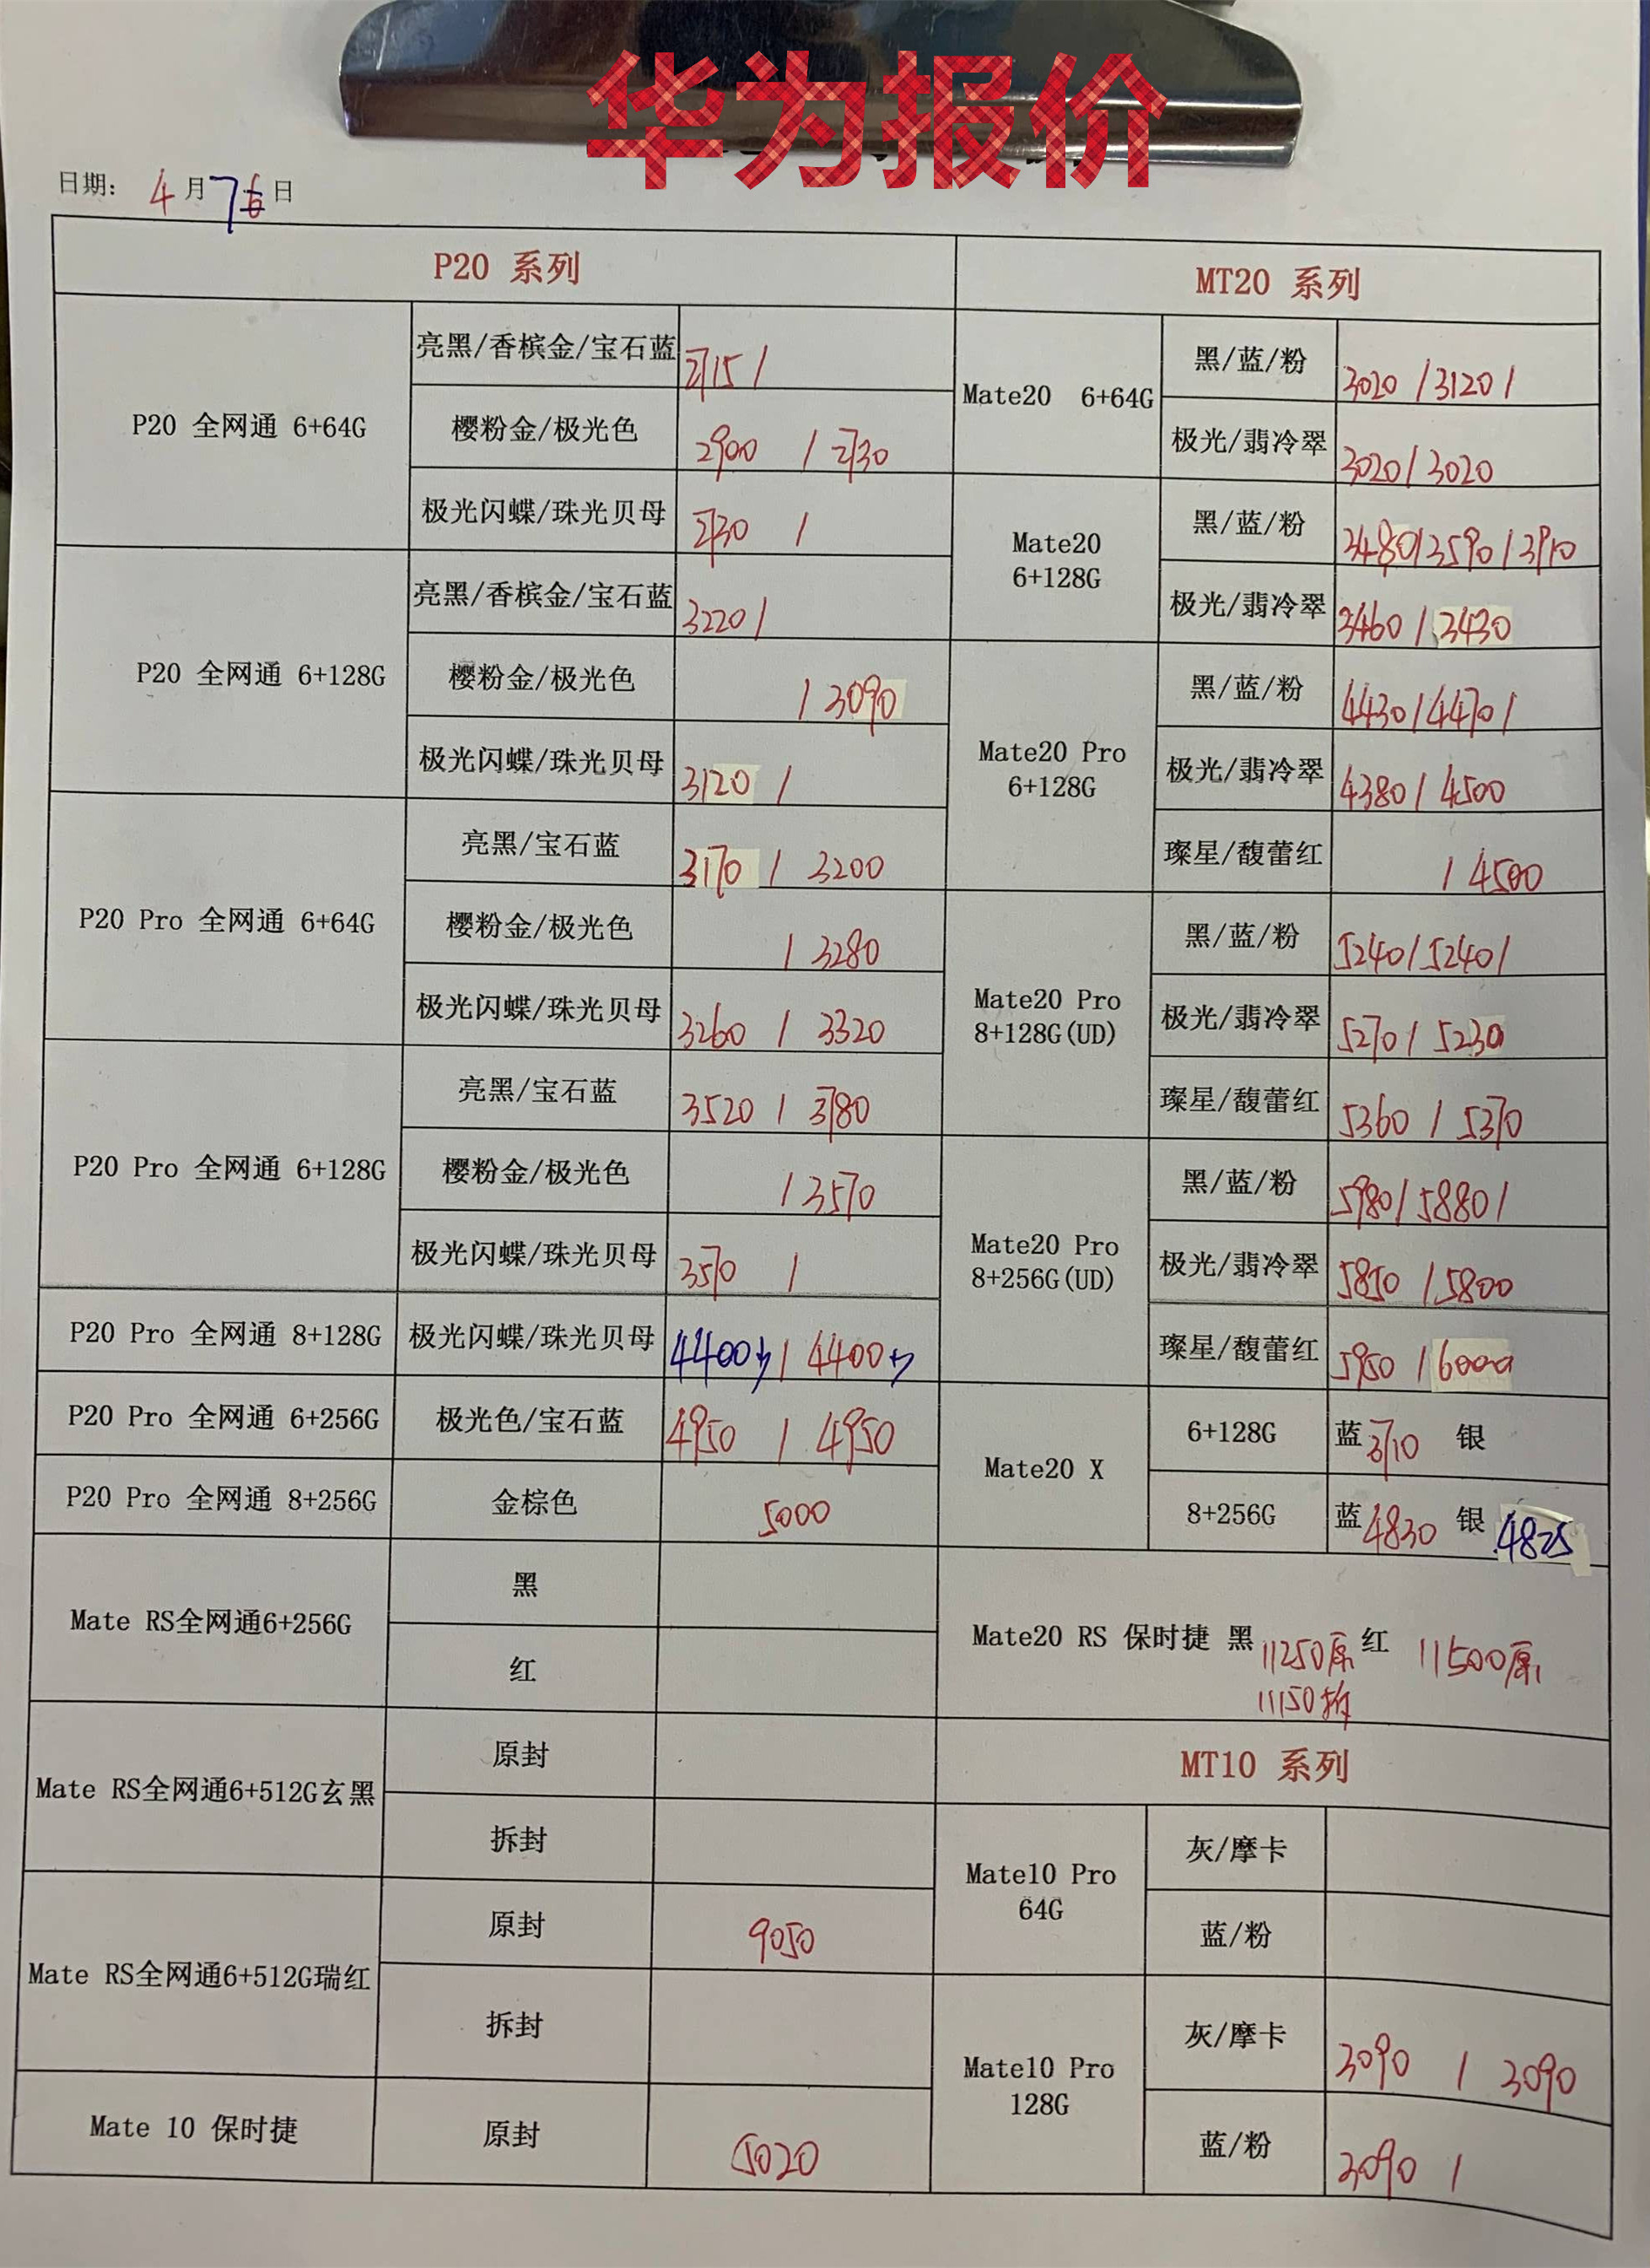 华为报价
日期： 4月7 6日
P20 系列
P20 全网通 6+64G
亮黑/香槟金/宝石蓝 2715 /
樱粉金/极光色 2900 / 2730
极光闪蝶/珠光贝母 2730 /
P20 全网通 6+128G
亮黑/香槟金/宝石蓝 3220 /
樱粉金/极光色 / 3090
极光闪蝶/珠光贝母 3120 /
P20 Pro 全网通 6+64G
亮黑/宝石蓝 3170 / 3200
樱粉金/极光色 / 3280
极光闪蝶/珠光贝母 3260 / 3320
P20 Pro 全网通 6+128G
亮黑/宝石蓝 3520 / 3780
樱粉金/极光色 / 3570
极光闪蝶/珠光贝母 3570 /
P20 Pro 全网通 8+128G 极光闪蝶/珠光贝母 4400 / 4400
P20 Pro 全网通 6+256G 极光色/宝石蓝 4950 / 4950
P20 Pro 全网通 8+256G 金棕色 5000
Mate RS全网通6+256G
黑
红
Mate RS全网通6+512G玄黑
原封
拆封
Mate RS全网通6+512G瑞红
原封 9050
拆封
Mate 10 保时捷 原封 5020
MT20 系列
Mate20 6+64G
黑/蓝/粉 3020 / 3120 /
极光/翡冷翠 3020 / 3020
Mate20
6+128G
黑/蓝/粉 3480 / 3590 / 3910
极光/翡冷翠 3460 / 3430
Mate20 Pro
6+128G
黑/蓝/粉 4430 / 4470 /
极光/翡冷翠 4380 / 4500
璨星/馥蕾红 / 4500
Mate20 Pro
8+128G(UD)
黑/蓝/粉 5240 / 5240 /
极光/翡冷翠 5270 / 5230
璨星/馥蕾红 5360 / 5370
Mate20 Pro
8+256G(UD)
黑/蓝/粉 5980 / 5880 /
极光/翡冷翠 5850 / 5800
璨星/馥蕾红 5950 / 6000
Mate20 X
6+128G 蓝 3710 银
8+256G 蓝 4830 银 4825
Mate20 RS 保时捷 黑 11250原 红 11500原
11150拆
MT10 系列
Mate10 Pro
64G
灰/摩卡
蓝/粉
Mate10 Pro
128G
灰/摩卡 3090 / 3090
蓝/粉 3090 /